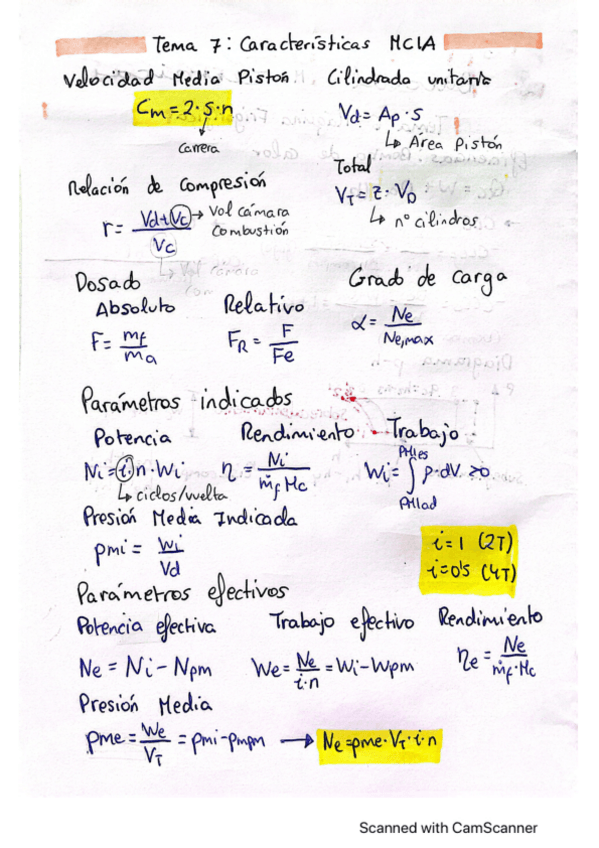 Tema 7: Características MCIA
Velocidad Media Pistón
Cm = 2·s·n
Carrera
Cilindrada unitaria
Vd = Ap·s
Área Pistón
Total
VT = z·VD
nº cilindros
Relación de compresión
r = Vd+Vc / Vc
Vol cámara
Combustión
Dosado
Absoluto
F = mf / ma
Relativo
FR = F / Fe
Grado de carga
α = Ne / Ne,max
Parámetros indicados
Potencia
Ni = i·n·Wi
ciclos/vuelta
Rendimiento
η = Ni / ṁf Hc
Trabajo
Wi = ∫ p·dV >0
Presión Media Indicada
pmi = Wi / Vd
i=1 (2T)
i=0'5 (4T)
Parámetros efectivos
Potencia efectiva
Ne = Ni - Npm
Trabajo efectivo
We = Ne / i·n = Wi - Wpm
Rendimiento
ηe = Ne / ṁf·Hc
Presión Media
pme = We / VT = pmi - pmpm → Ne = pme·VT·i·n
Scanned with CamScanner